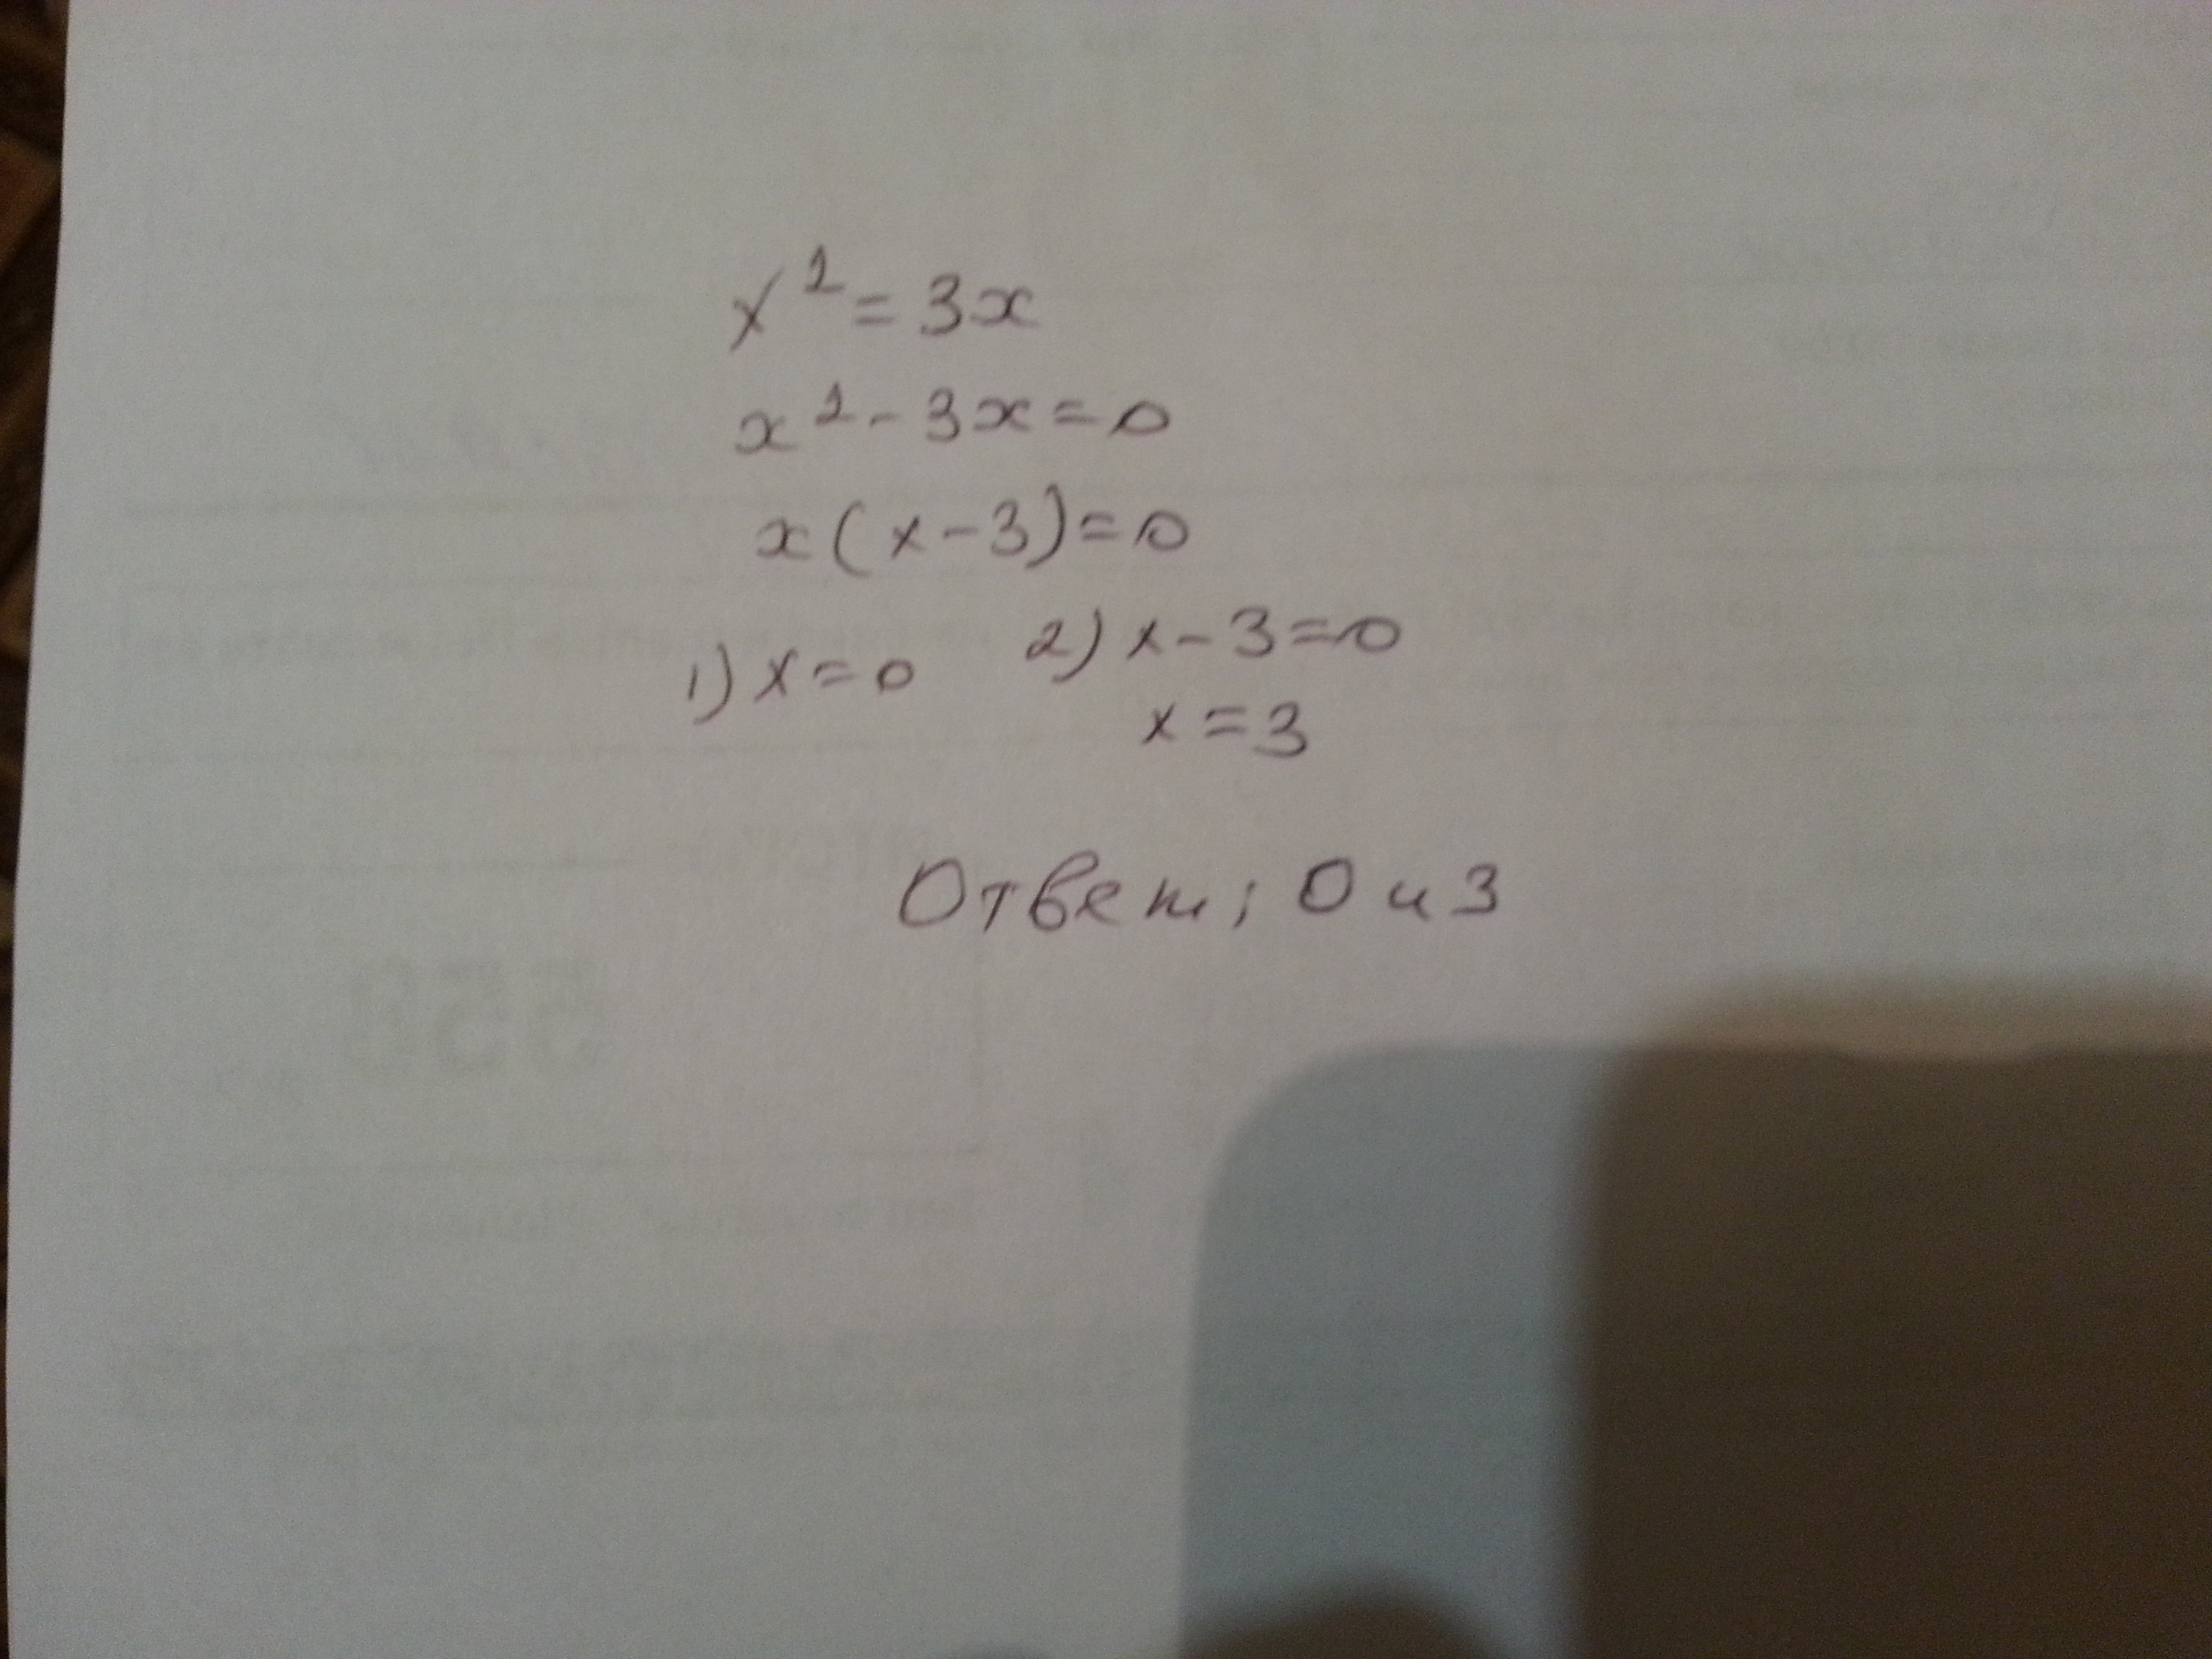 x² = 3x
x² - 3x = 0
x(x-3)=0
1) x=0 2) x-3=0
x=3
Ответ; 0 и 3